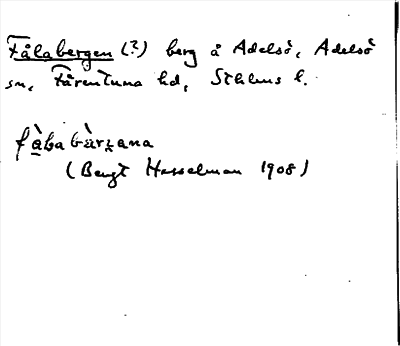 Fålabergen (?) berg å Adelsö, Adelsö
sn, Färentuna hd, Sthlms l.
fàbabàrzana
(Bengt Hesselman 1908)